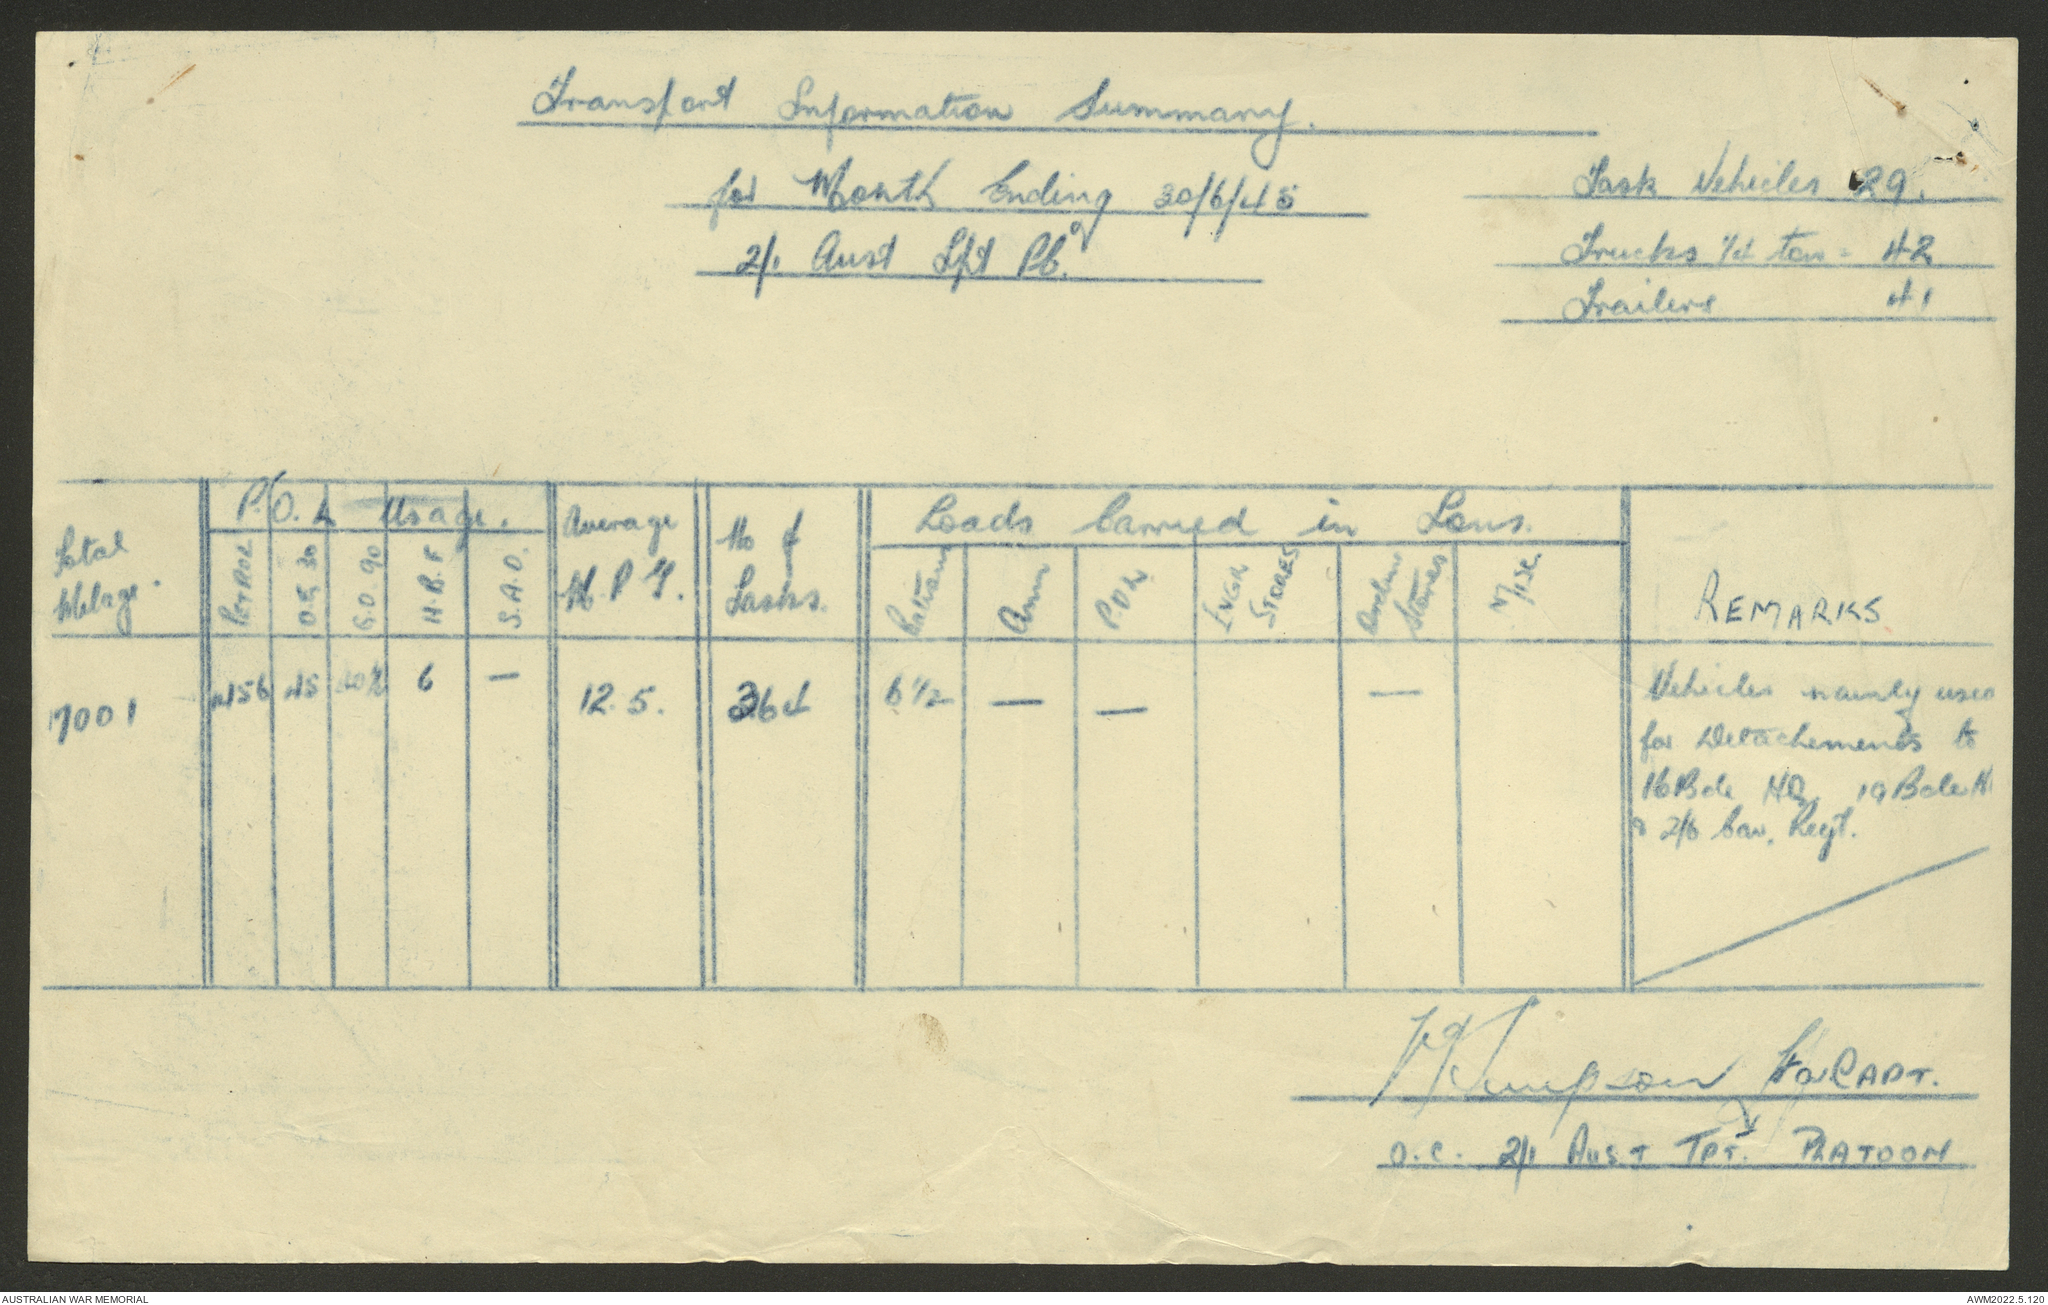 Transport Information Summary.
for Month Ending 30/6/45
2/1 Aust Tpt Pl.
Task Vehicles 29.
Trucks 1/4 ton = 42
Trailers 41
Total Milage.
P.O.L Usage.
PETROL
O.E 30
G.O. 90
H.B.F
S.A.O.
Average M.P.G.
No of Tasks.
Loads Carried in Tons.
Rations
Amn
P.O.L
ENGR STORES
Ordn Stores
MISC
REMARKS
7001
456
45
6
—
12.5.
364
6 1/2
—
—
—
Vehicles mainly used
for Detachements to
16 Bde HQ, 19 Bde H
& 2/6 Cav. Regt.
Simpson Lt for CAPT.
O.C. 2/1 AUST TPT. PLATOON
AUSTRALIAN WAR MEMORIAL
AWM2022.5.120